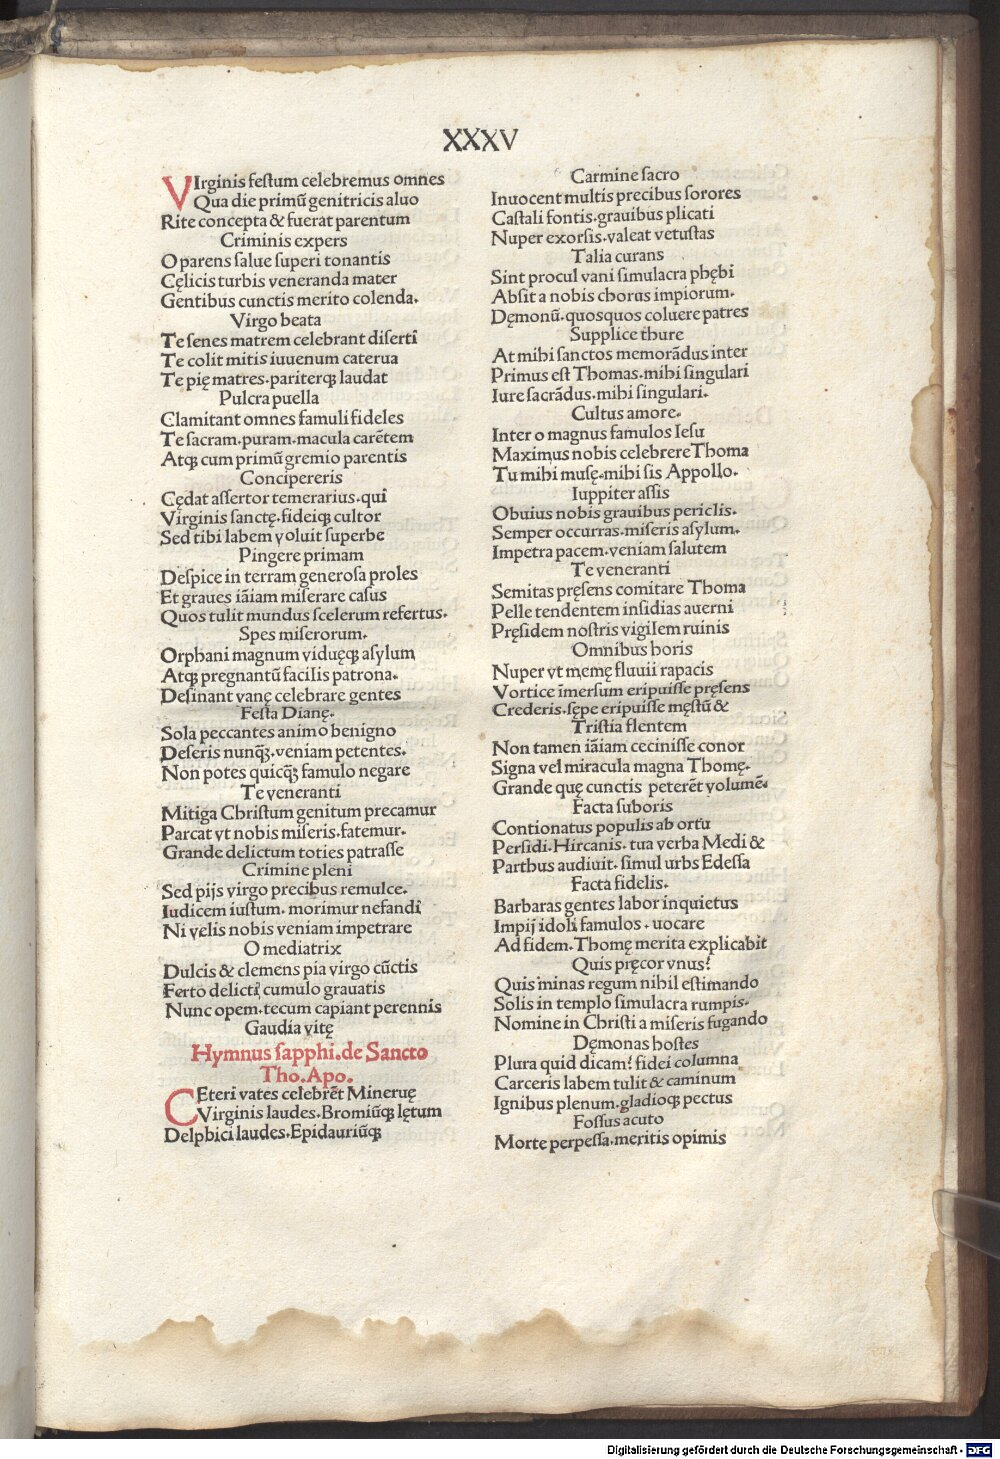 XXXV
VIrginis festum celebremus omnes
Qua die primū genitricis aluo
Rite concepta & fuerat parentum
Criminis expers
O parens salue superi tonantis
Cęlicis turbis veneranda mater
Gentibus cunctis merito colenda.
Virgo beata
Te senes matrem celebrant diserti
Te colit mitis iuuenum caterua
Te pię matres.pariterqꝫ laudat
Pulcra puella
Clamitant omnes famuli fideles
Te sacram.puram.macula carētem
Atqꝫ cum primū gremio parentis
Concipereris
Cędat assertor temerarius.qui
Virginis sanctę.fideiqꝫ cultor
Sed tibi labem voluit superbe
Pingere primam
Despice in terram generosa proles
Et graues iāiam miserare casus
Quos tulit mundus scelerum refertus.
Spes miserorum.
Orphani magnum viduęqꝫ asylum
Atqꝫ pregnantū facilis patrona.
Desinant vanę celebrare gentes
Festa Dianę.
Sola peccantes animo benigno
Deseris nunqꝫ̄.veniam petentes.
Non potes quicqꝫ̄ famulo negare
Te veneranti
Mitiga Christum genitum precamur
Parcat vt nobis miseris.fatemur.
Grande delictum toties patrasse
Crimine pleni
Sed pijs virgo precibus remulce.
Iudicem iustum.morimur nefandi
Ni velis nobis veniam impetrare
O mediatrix
Dulcis & clemens pia virgo cūctis
Ferto delicti cumulo grauatis
Nunc opem.tecum capiant perennis
Gaudia vitę
Hymnus sapphi.de Sancto
Tho.Apo.
CEteri vates celebrēt Mineruę
Virginis laudes.Bromiūqꝫ lętum
Delphici laudes.Epidauriūqꝫ
Carmine sacro
Inuocent multis precibus sorores
Castali fontis.grauibus plicati
Nuper exorsis.valeat vetustas
Talia curans
Sint procul vani simulacra phębi
Absit a nobis chorus impiorum.
Dęmonū.quosquos coluere patres
Supplice thure
At mihi sanctos memorādus inter
Primus est Thomas.mihi singulari
Iure sacrādus.mihi singulari.
Cultus amore.
Inter o magnus famulos Iesu
Maximus nobis celebrere Thoma
Tu mihi musę.mihi sis Appollo.
Iuppiter assis
Obuius nobis grauibus periclis.
Semper occurras.miseris asylum.
Impetra pacem.veniam salutem
Te veneranti
Semitas pręsens comitare Thoma
Pelle tendentem insidias auerni
Pręsidem nostris vigilem ruinis
Omnibus horis
Nuper vt memę fluuii rapacis
Vortice īmersum eripuisse pręsens
Crederis.sępe eripuisse męstū &
Tristia flentem
Non tamen iāiam cecinisse conor
Signa vel miracula magna Thomę.
Grande quę cunctis peteret volumē.
Facta suboris
Contionatus populis ab ortu
Persidi.Hircanis.tua verba Medi &
Parthus audiuit.simul urbs Edessa
Facta fidelis.
Barbaras gentes labor inquietus
Impij idoli famulos.uocare
Ad fidem.Thomę merita explicabit
Quis pręcor vnus?
Quis minas regum nihil estimando
Solis in templo simulacra rumpis.
Nomine in Christi a miseris fugando
Dęmonas hostes
Plura quid dicam? fidei columna
Carceris labem tulit & caminum
Ignibus plenum.gladioqꝫ pectus
Fossus acuto
Morte perpessa.meritis opimis
Digitalisierung gefördert durch die Deutsche Forschungsgemeinschaft - DFG